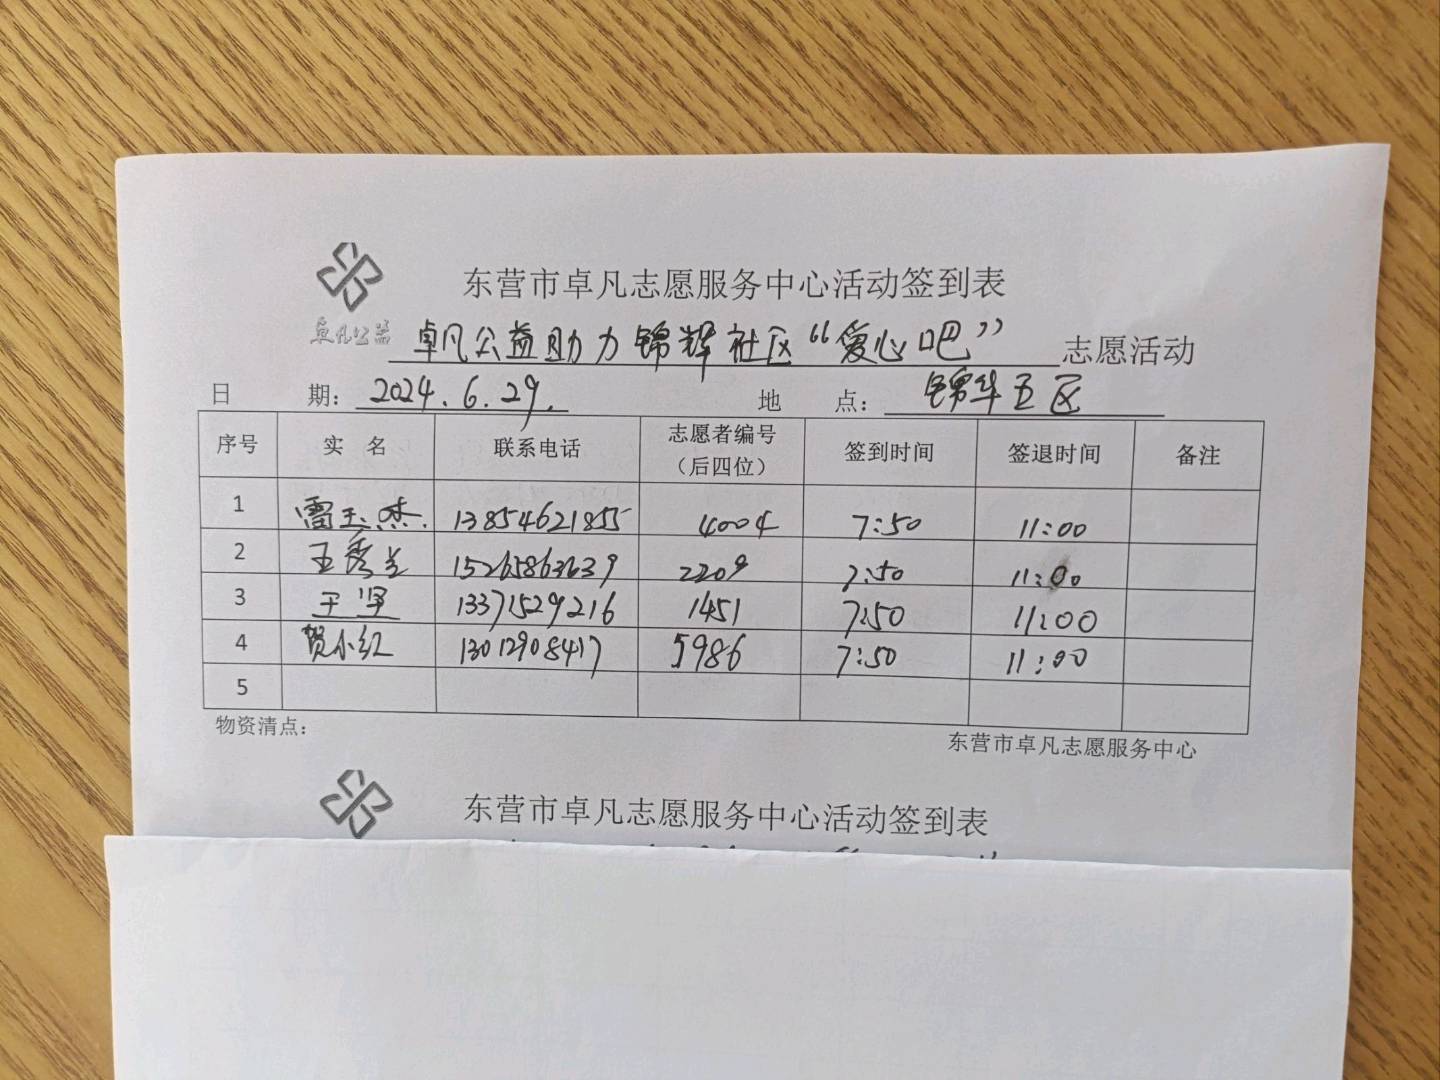 东营市卓凡志愿服务中心活动签到表
卓凡公益
卓凡公益助力锦辉社区“爱心吧”志愿活动
日 期：2024.6.29. 地 点：锦华五区
序号 实 名 联系电话 志愿者编号（后四位） 签到时间 签退时间 备注
1 雷玉杰. 13854621855 4004 7:50 11:00
2 王秀兰 15265863639 2209 7:50 11:00
3 王坚 13371529216 1451 7:50 11:00
4 贺小红 13012908417 5986 7:50 11:00
5
物资清点： 东营市卓凡志愿服务中心
东营市卓凡志愿服务中心活动签到表